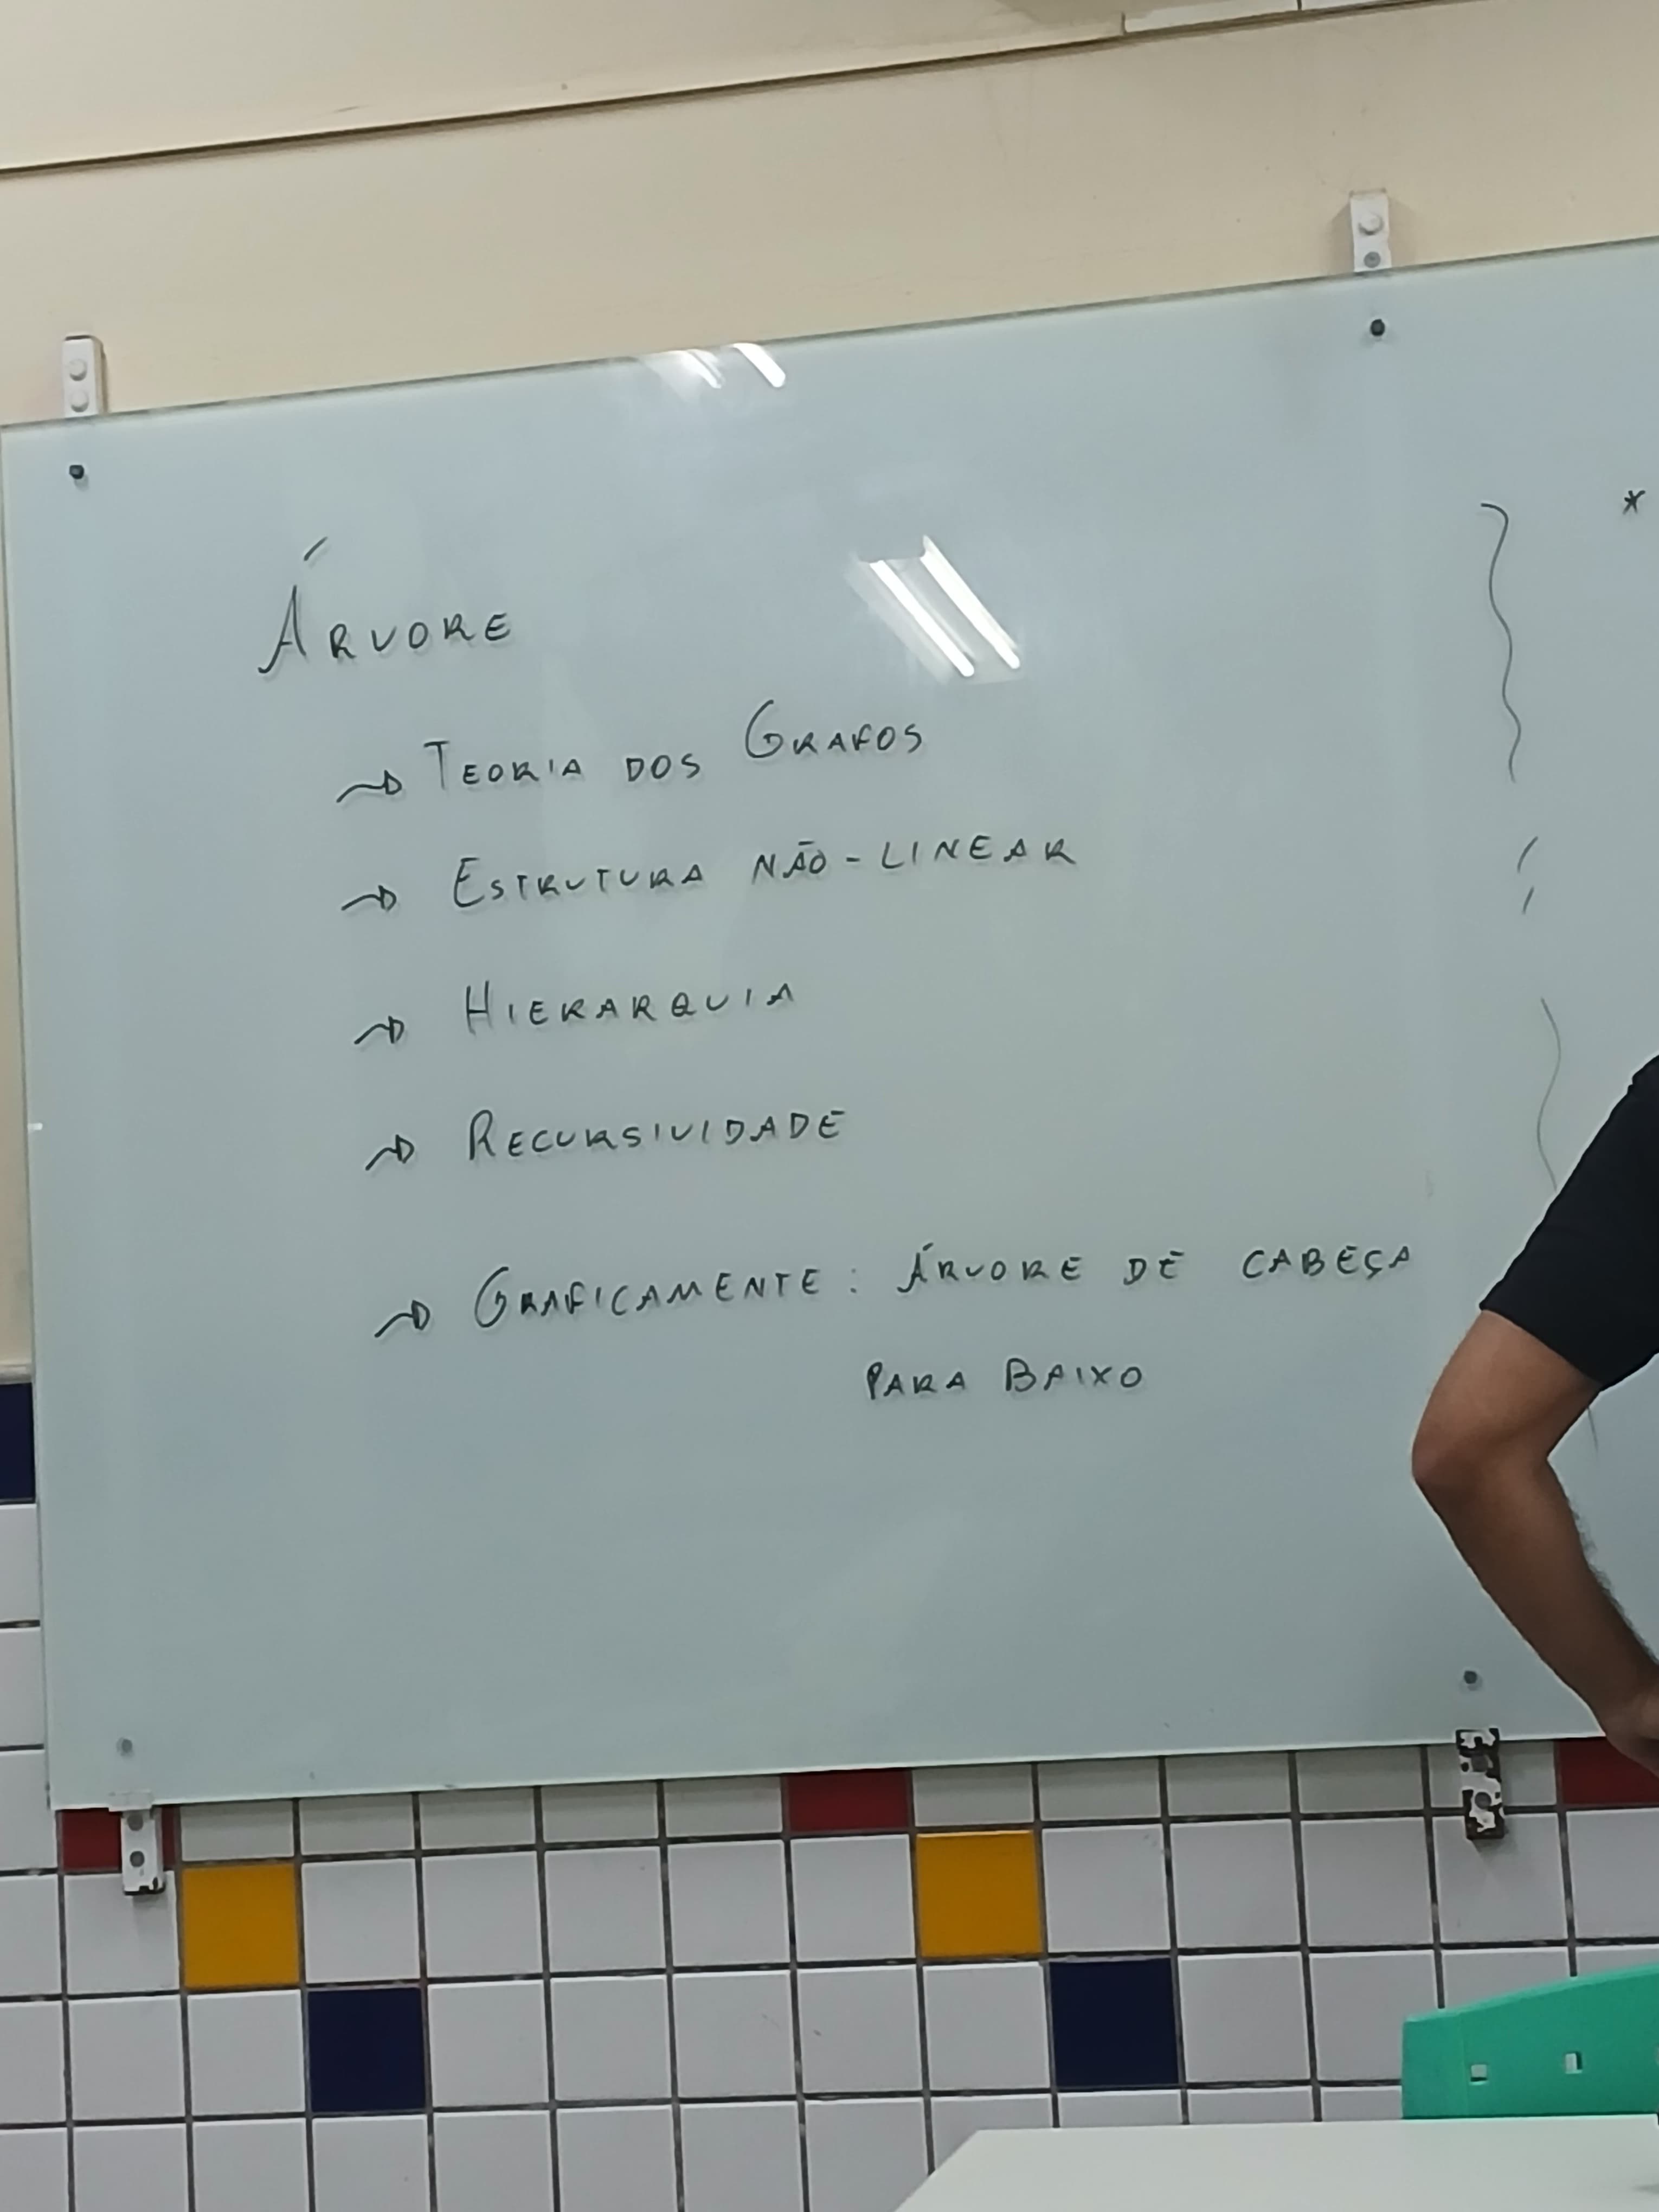 ÁRVORE
~> TEORIA DOS GRAFOS
~> ESTRUTURA NÃO-LINEAR
~> HIERARQUIA
~> RECURSIVIDADE
~> GRAFICAMENTE: ÁRVORE DE CABEÇA
PARA BAIXO
*